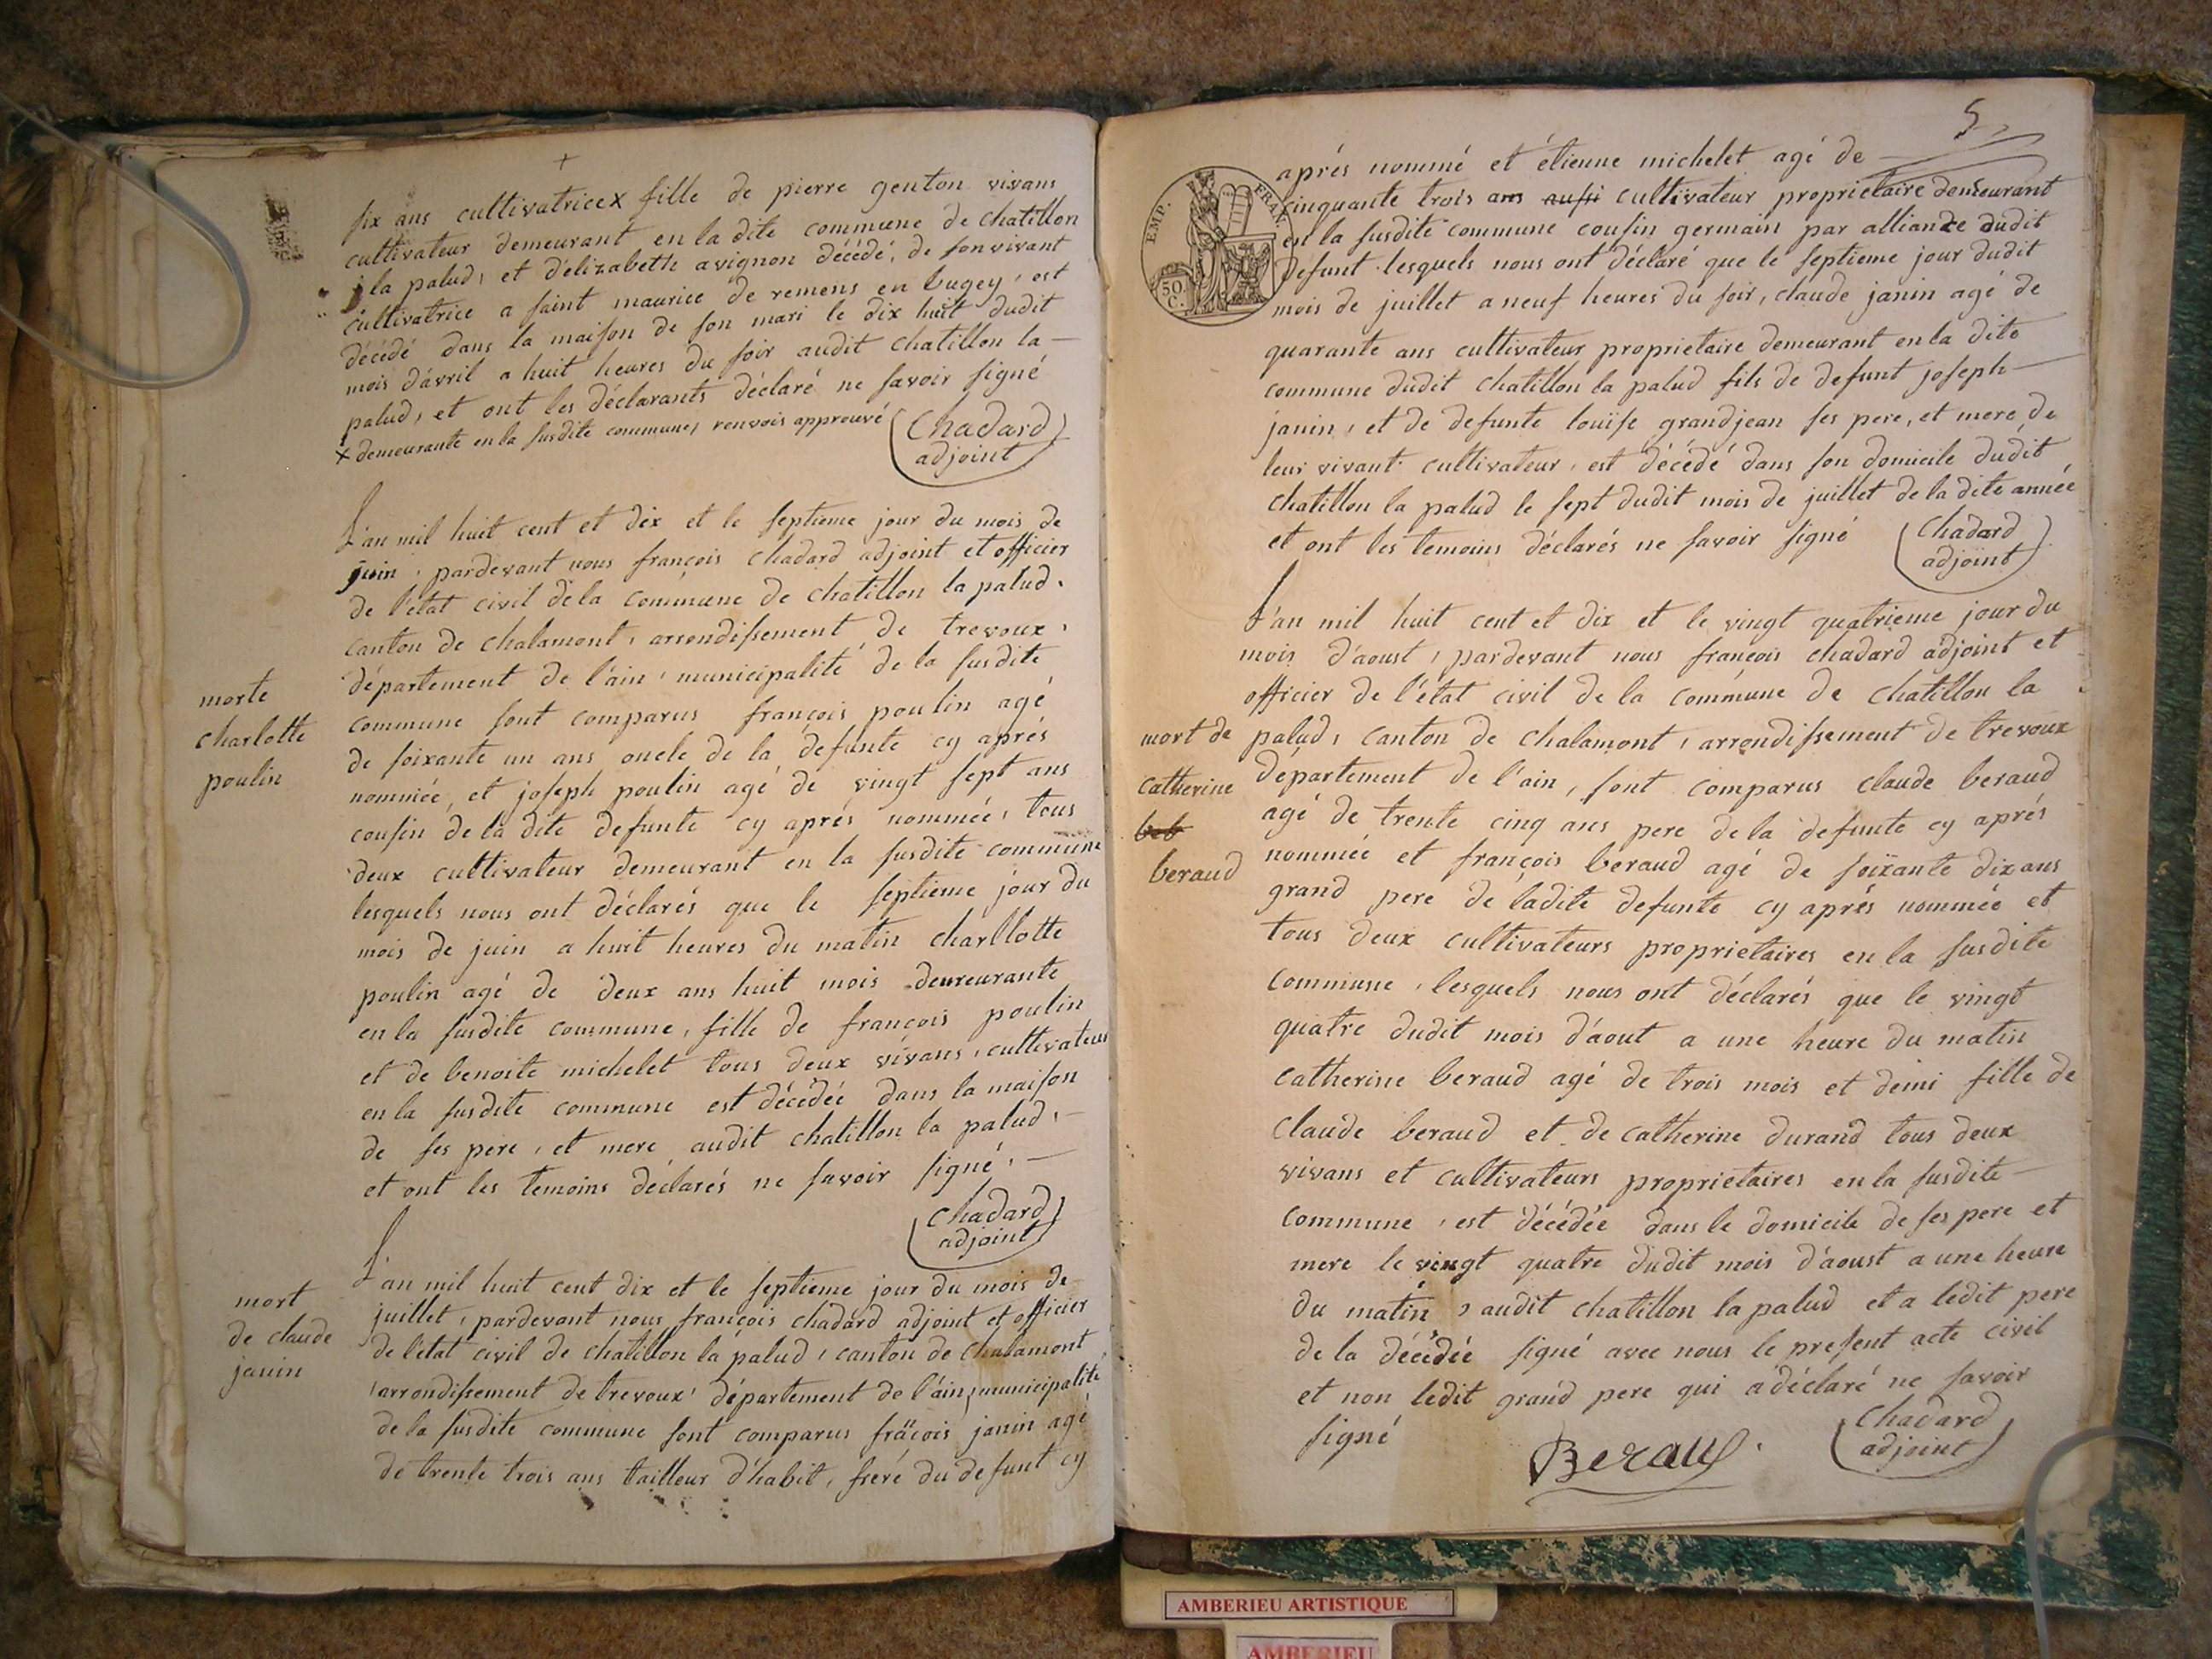 +
six ans cultivatrice x fille de pierre genton vivans
cultivateur demeurant en la dite commune de chatillon
la palud, et d'élizabeth avignon décédé, de son vivant
cultivatrice a saint maurice de remens en bugey, est
décédé dans la maison de son mari le dix huit dudit
mois d'avril a huit heures du soir audit chatillon la
palud, et ont les déclarants déclaré ne savoir signé
x demeurante en la susdite commune, renvois approuvé
Chadard
adjoint
L'an mil huit cent et dix et le septieme jour du mois de
juin, pardevant nous françois chadard adjoint et officier
de l'état civil de la commune de chatillon la palud,
canton de chalamont, arrondissement de trevoux,
département de l'ain, municipalité de la susdite
commune sont comparus françois poulin agé
de soixante un ans oncle de la defunte cy aprés
nommée, et joseph poulin agé de vingt sept ans
cousin de la dite defunte cy aprés nommée, tous
deux cultivateur demeurant en la susdite commune
lesquels nous ont déclarés que le septieme jour du
mois de juin a huit heures du matin charllotte
poulin agé de deux ans huit mois demeurante
en la susdite commune, fille de françois poulin
et de benoite michelet tous deux vivans, cultivateurs
en la susdite commune est décédée dans la maison
de ses pere, et mere audit chatillon la palud,
et ont les temoins déclarés ne savoir signé,
morte
charlotte
poulin
Chadard
adjoint
L'an mil huit cent dix et le septieme jour du mois de
juillet, pardevant nous françois chadard adjoint et officier
de l'etat civil de chatillon la palud, canton de chalamont
arrondissement de trevoux, département de l'ain, municipalité
de la susdite commune sont comparus fräcois janin agé
de trente trois ans tailleur d'habit, freré du defunt cy
mort
de claude
janin
5
EMP. FRAN.
50
C.
aprés nommé et étienne michelet agé de
cinquante trois ans aussi cultivateur proprietaire demeurant
en la susdite commune cousin germain par alliance dudit
defunt lesquels nous ont déclaré que le septieme jour dudit
mois de juillet a neuf heures du soir, claude janin agé de
quarante ans cultivateur proprietaire demeurant en la dite
commune dudit chatillon la palud fils de defunt joseph
janin, et de defunte louise grandjean ses pere, et mere, de
leur vivant cultivateur, est décédé dans son domicile dudit
chatillon la palud le sept dudit mois de juillet de la dite année
et ont les temoins déclarés ne savoir signé
Chadard
adjoint
L'an mil huit cent et dix et le vingt quatrieme jour du
mois d'aoust, pardevant nous francois chadard adjoint et
officier de l'état civil de la commune de chatillon la
palud, canton de chalamont, arrondissement de trevoux
département de l'ain, sont comparus claude beraud
agé de trente cinq ans pere de la defunte cy aprés
nommée et françois beraud agé de soixante dix ans
grand pere de ladite defunte cy aprés nommée et
tous deux cultivateurs proprietaires en la susdite
commune, lesquels nous ont déclarés que le vingt
quatre dudit mois d'aout a une heure du matin
catherine beraud agé de trois mois et demi fille de
claude beraud et de catherine durand tous deux
vivans et cultivateurs proprietaires en la susdite
commune, est décédée dans le domicile de ses pere et
mere le vingt quatre dudit mois d'aoust a une heure
du matin, audit chatillon la palud et a ledit pere
de la décédée signé avec nous le present acte civil
et non ledit grand pere qui a déclaré ne savoir
signé
mort de
catherine
beb
beraud
Beraud
Chadard
adjoint
AMBERIEU ARTISTIQUE
AMBERIEU